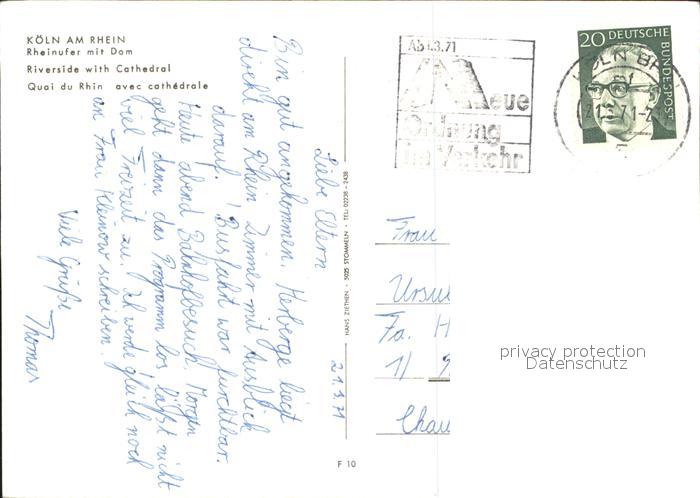 KÖLN AM RHEIN
Rheinufer mit Dom
Riverside with Cathedral
Quai du Rhin avec cathédrale
Ab 1.3.71
Neue
Ordnung
im Verkehr
20 DEUTSCHE
BUNDESPOST
KÖLN
21.3.71
Liebe Eltern
Bin gut angekommen. Herberge liegt
direkt am Rhein Zimmer mit Ausblick
darauf. Busfahrt war furchtbar.
Heute abend Bahnhofbesuch. Morgen
geht dann das Programm los läßt nicht
viel Freizeit zu. Ich werde gleich noch
an Frau Kleinow schreiben.
Viele Grüße
Thomas
21.3.71
HANS ZIETHEN · 5025 STOMMELN · TEL: 02238-2438
F 10
Frau
Ursul
Fa. H
1/
Chau
privacy protection
Datenschutz